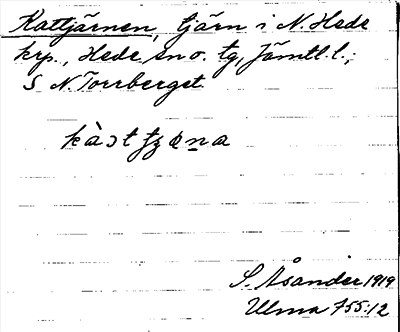 Kattjärnen, tjärn i N. Hede
krp., Hede sn o. tg, Jämtl. l.;
S N. Torrberget.
S. Åsander 1919
Ulma 755:12